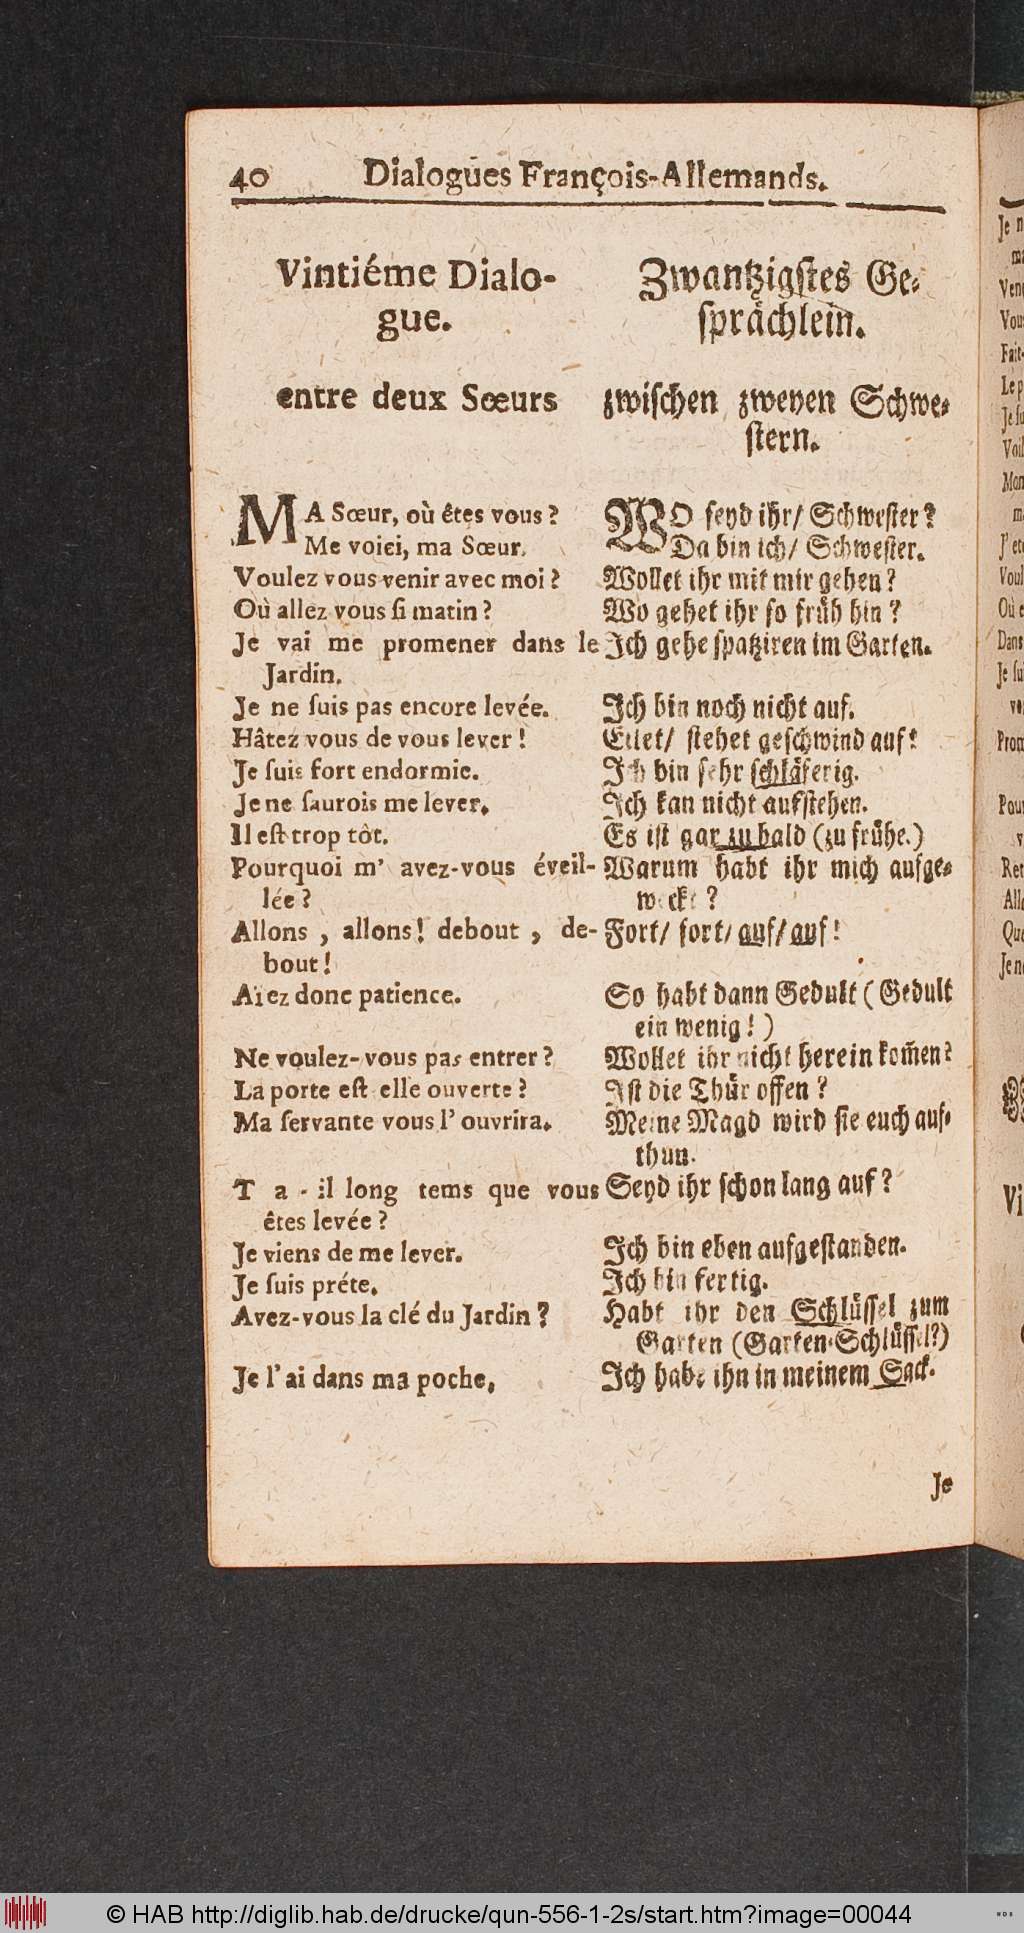 40 Dialogues François-Allemands.
Vintiéme Dialo-
gue.
entre deux Sœurs
MA Sœur, où êtes vous?
Me voici, ma Sœur.
Voulez vous venir avec moi?
Où allez vous ſi matin?
Je vai me promener dans le
Jardin.
Je ne ſuis pas encore levée.
Hâtez vous de vous lever!
Je ſuis fort endormie.
Je ne ſaurois me lever.
Il eſt trop tôt.
Pourquoi m' avez-vous éveil-
lée?
Allons, allons! debout, de-
bout!
Aïez donc patience.
Ne voulez-vous pas entrer?
La porte eſt elle ouverte?
Ma ſervante vous l' ouvrira.
T a-il long tems que vous
êtes levée?
Je viens de me lever.
Je ſuis préte.
Avez-vous la clé du Jardin?
Je l' ai dans ma poche.
Zwantzigſtes Ge-
ſprächlein.
zwiſchen zweyen Schwe-
ſtern.
WO ſeyd ihr/ Schweſter?
Da bin ich/ Schweſter.
Wollet ihr mit mir gehen?
Wo gehet ihr ſo früh hin?
Ich gehe ſpatziren im Garten.
Ich bin noch nicht auf.
Eilet/ ſtehet geſchwind auf!
Ich bin ſehr ſchläferig.
Ich kan nicht aufſtehen.
Es iſt gar zu bald (zu frühe.)
Warum habt ihr mich aufge-
weckt?
Fort/ fort/ auf/ auf!
So habt dann Gedult (Gedult
ein wenig!)
Wollet ihr nicht herein kom̃en?
Iſt die Thür offen?
Meine Magd wird ſie euch auf-
thun.
Seyd ihr ſchon lang auf?
Ich bin eben aufgeſtanden.
Ich bin fertig.
Habt ihr den Schlüſſel zum
Garten (Garten-Schlüſſel?)
Ich habe ihn in meinem Sack.
Je
© HAB http://diglib.hab.de/drucke/qun-556-1-2s/start.htm?image=00044